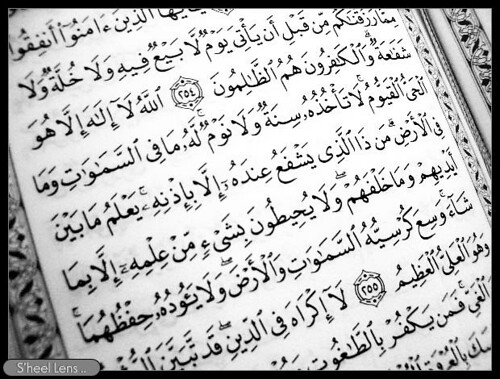 ٱلَّذِينَ ءَامَنُوٓا۟ أَنفِقُوا۟
مِمَّا رَزَقْنَٰكُم مِّن قَبْلِ أَن يَأْتِىَ يَوْمٌ لَّا بَيْعٌ فِيهِ وَلَا خُلَّةٌ وَلَا
شَفَٰعَةٌ ۗ وَٱلْكَٰفِرُونَ هُمُ ٱلظَّٰلِمُونَ ٢٥٤ ٱللَّهُ لَآ إِلَٰهَ إِلَّا هُوَ
ٱلْحَىُّ ٱلْقَيُّومُ ۚ لَا تَأْخُذُهُۥ سِنَةٌ وَلَا نَوْمٌ ۚ لَّهُۥ مَا فِى ٱلسَّمَٰوَٰتِ وَمَا
فِى ٱلْأَرْضِ ۗ مَن ذَا ٱلَّذِى يَشْفَعُ عِندَهُۥٓ إِلَّا بِإِذْنِهِۦ ۚ يَعْلَمُ مَا بَيْنَ
أَيْدِيهِمْ وَمَا خَلْفَهُمْ ۖ وَلَا يُحِيطُونَ بِشَىْءٍ مِّنْ عِلْمِهِۦٓ إِلَّا بِمَا
شَآءَ ۚ وَسِعَ كُرْسِيُّهُ ٱلسَّمَٰوَٰتِ وَٱلْأَرْضَ ۖ وَلَا يَـُٔودُهُۥ حِفْظُهُمَا ۚ
وَهُوَ ٱلْعَلِىُّ ٱلْعَظِيمُ ٢٥٥ لَآ إِكْرَاهَ فِى ٱلدِّينِ ۖ قَد تَّبَيَّنَ
ٱلْغَىِّ ۚ فَمَن يَكْفُرْ بِٱلطَّٰغُوتِ
بِٱلْعُرْوَةِ
S'heel Lens..